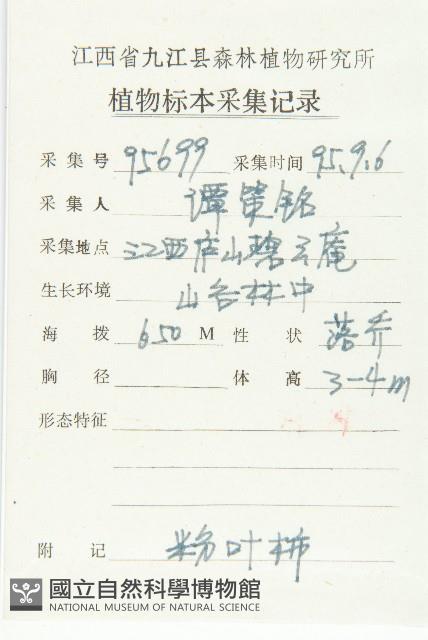 江西省九江县森林植物研究所
植物标本采集记录
采集号 95699 采集时间 95.9.6
采集人 谭策铭
采集地点 江西庐山碧云庵
生长环境 山谷林中
海拨 650 M 性状 落乔
胸径 体高 3-4m
形态特征
附记 粉叶柿
國立自然科學博物館
NATIONAL MUSEUM OF NATURAL SCIENCE